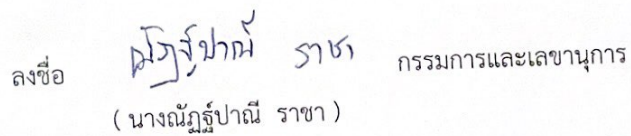 ลงชื่อ ณัฏฐ์ปาณี ราชา กรรมการและเลขานุการ
( นางณัฏฐ์ปาณี ราชา )